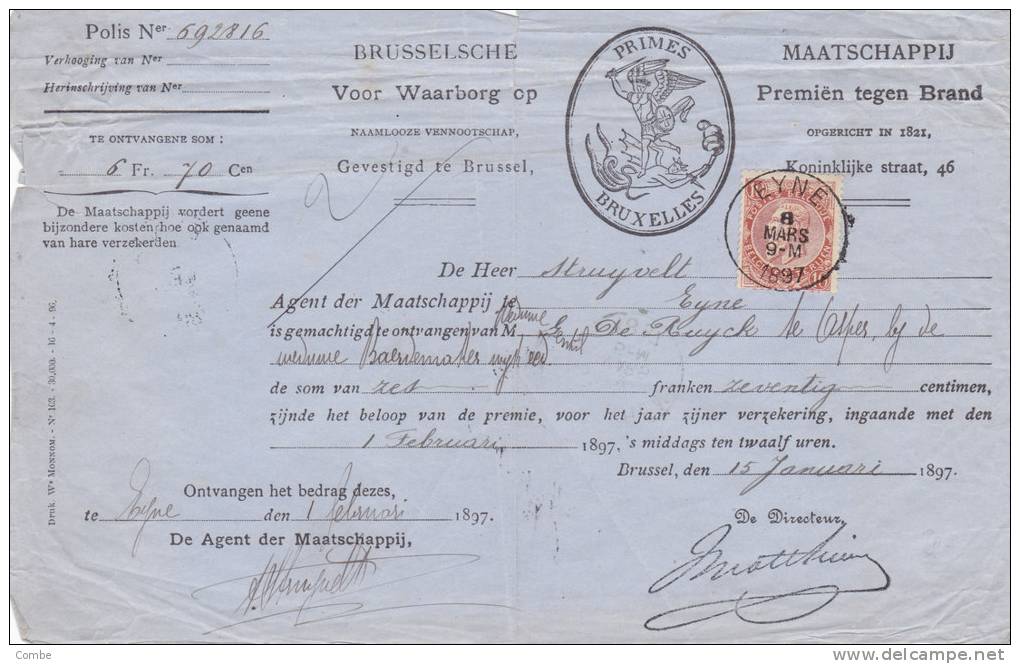 Polis Ner 692816
Verhooging van Ner
Herinschrijving van Ner
TE ONTVANGENE SOM :
6 Fr. 70 Cen
De Maatschappij vordert geene
bijzondere kosten hoe ook genaamd
van hare verzekerden
BRUSSELSCHE MAATSCHAPPIJ
Voor Waarborg op Premiën tegen Brand
NAAMLOOZE VENNOOTSCHAP, OPGERICHT IN 1821,
Gevestigd te Brussel, Koninklijke straat, 46
PRIMES
BRUXELLES
EYNE
8
MARS
9-M
1897
De Heer Struyvelt
Agent der Maatschappij te Eyne
is gemachtigd te ontvangen van M E. De Ruyck te Asper, bij de
weduwe
de som van zes franken zeventig centimen,
zijnde het beloop van de premie, voor het jaar zijner verzekering, ingaande met den
1 Februari 1897, 's middags ten twaalf uren.
Brussel, den 15 Januari 1897.
Ontvangen het bedrag dezes,
te Eyne den 1 februari 1897.
De Agent der Maatschappij,
De Directeur,
Druk. We MONNOM. - No 103. - 30,000. - 16-4-96.
Combe
www.delcampe.net